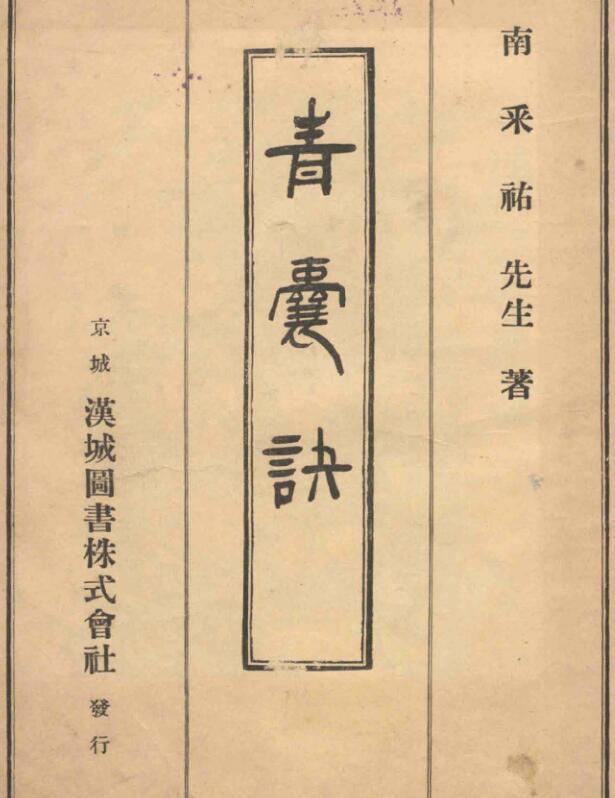 南采祐先生著
青囊訣
京城 漢城圖書株式會社 發行